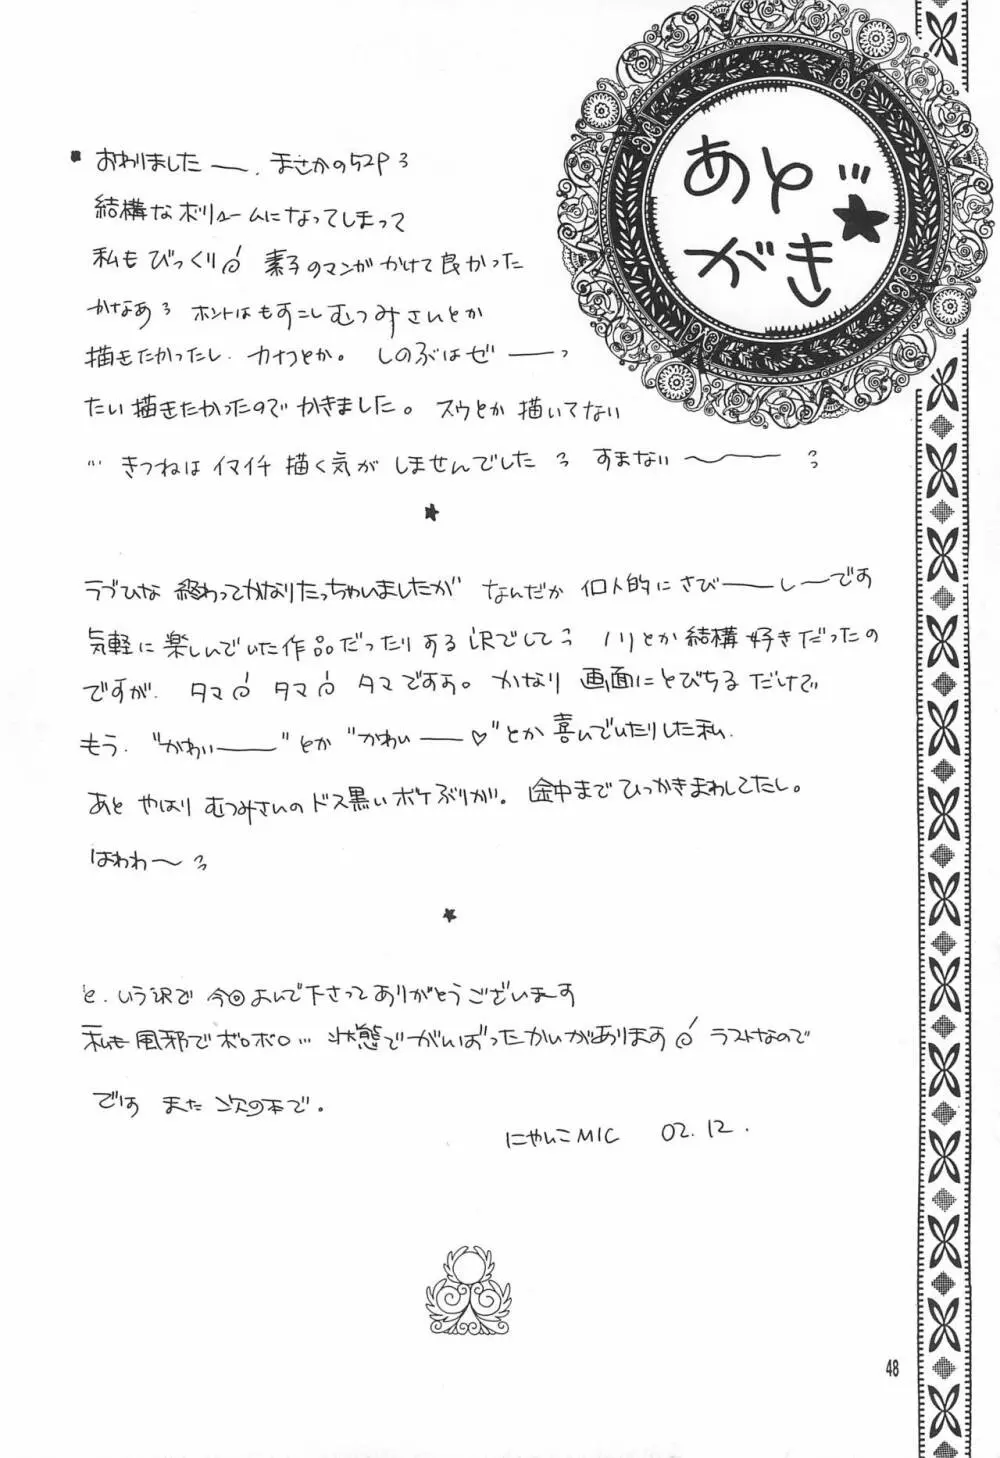 あと…
がき★
■ おわりましたーー、まさかの52P
結構なボリュームになってしまって
私もびっくり 素子のマンガかけて良かった
かなあ ホントはもすこしむつみさんとか
描きたかったし、カナコとか。しのぶはぜーーっ
たい描きたかったのでかきました。スウとか描いてない
… きつねはイマイチ描く気がしませんでした すまない〜〜
★
ラブひな 終わってかなりたっちゃいましたが なんだか個人的にさびーーしーです
気軽に楽しんでいた作品だったりする訳でして ノリとか結構好きだったの
ですが、タマ タマ タマですよ。かなり画面にとびちるだけで
もう、"かわいーー"とか"かわいーー♡"とか喜んでいたりした私、
あと やはりむつみさんのドス黒いボケぶりが。途中までひっかきまわしてたし。
はわわ〜
★
と、いう訳で 今回よんで下さってありがとうございまーす
私も風邪でボロボロ…状態でがんばったかいがあります ラストなので
では また次の本で。
にゃんこMIC 02.12.
48